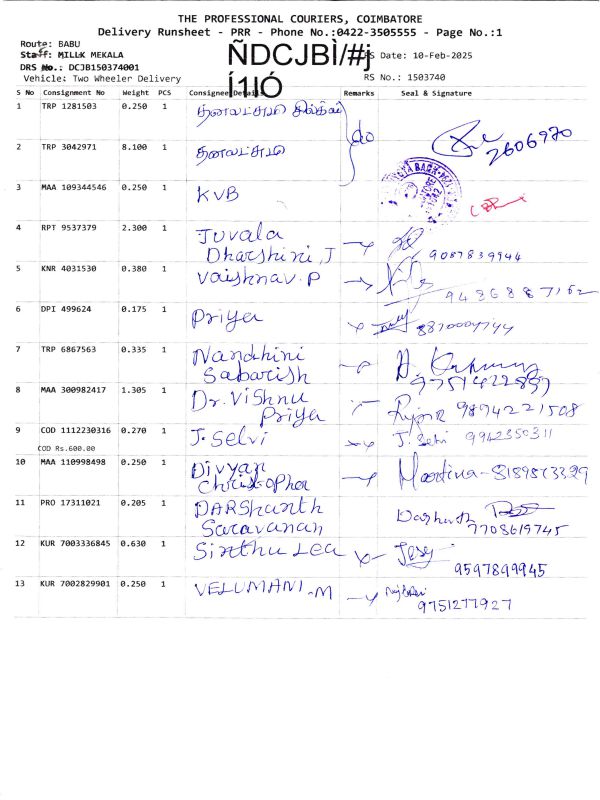 THE PROFESSIONAL COURIERS, COIMBATORE
Delivery Runsheet - PRR - Phone No.:0422-3505555 - Page No.:1
Route: BABU
Staff: MILLK MEKALA
ÑDCJBÌ/#j
RS Date: 10-Feb-2025
DRS No.: DCJB150374001
Í1IÓ
Vehicle: Two Wheeler Delivery
RS No.: 1503740
S No Consignment No Weight PCS Consignee Details Remarks Seal & Signature
1 TRP 1281503 0.250 1 தனலட்சுமி சில்க்ஸ்
do
2606970
2 TRP 3042971 8.100 1 தனலட்சுமி
3 MAA 109344546 0.250 1 KVB
4 RPT 9537379 2.300 1 Juvala
Dharshini, J 9087839944
5 KNR 4031530 0.380 1 Vaishnav. P
9486887162
6 DPI 499624 0.175 1 Priya
7 TRP 6867563 0.335 1 Nandhini
Sabarish 9751422897
8 MAA 300982417 1.305 1 Dr. Vishnu
Priya 9894221508
9 COD 1112230316 0.270 1 J. Selvi J. Selvi 9942350311
COD Rs.600.00
10 MAA 110998498 0.250 1 Divyan
Christopher
11 PRO 17311021 0.205 1 DARShanth
Saravanan Darshanth
7708619745
12 KUR 7003336845 0.630 1 Sinthu Lea
9597899945
13 KUR 7002829901 0.250 1 VELUMANI.M
9751277927